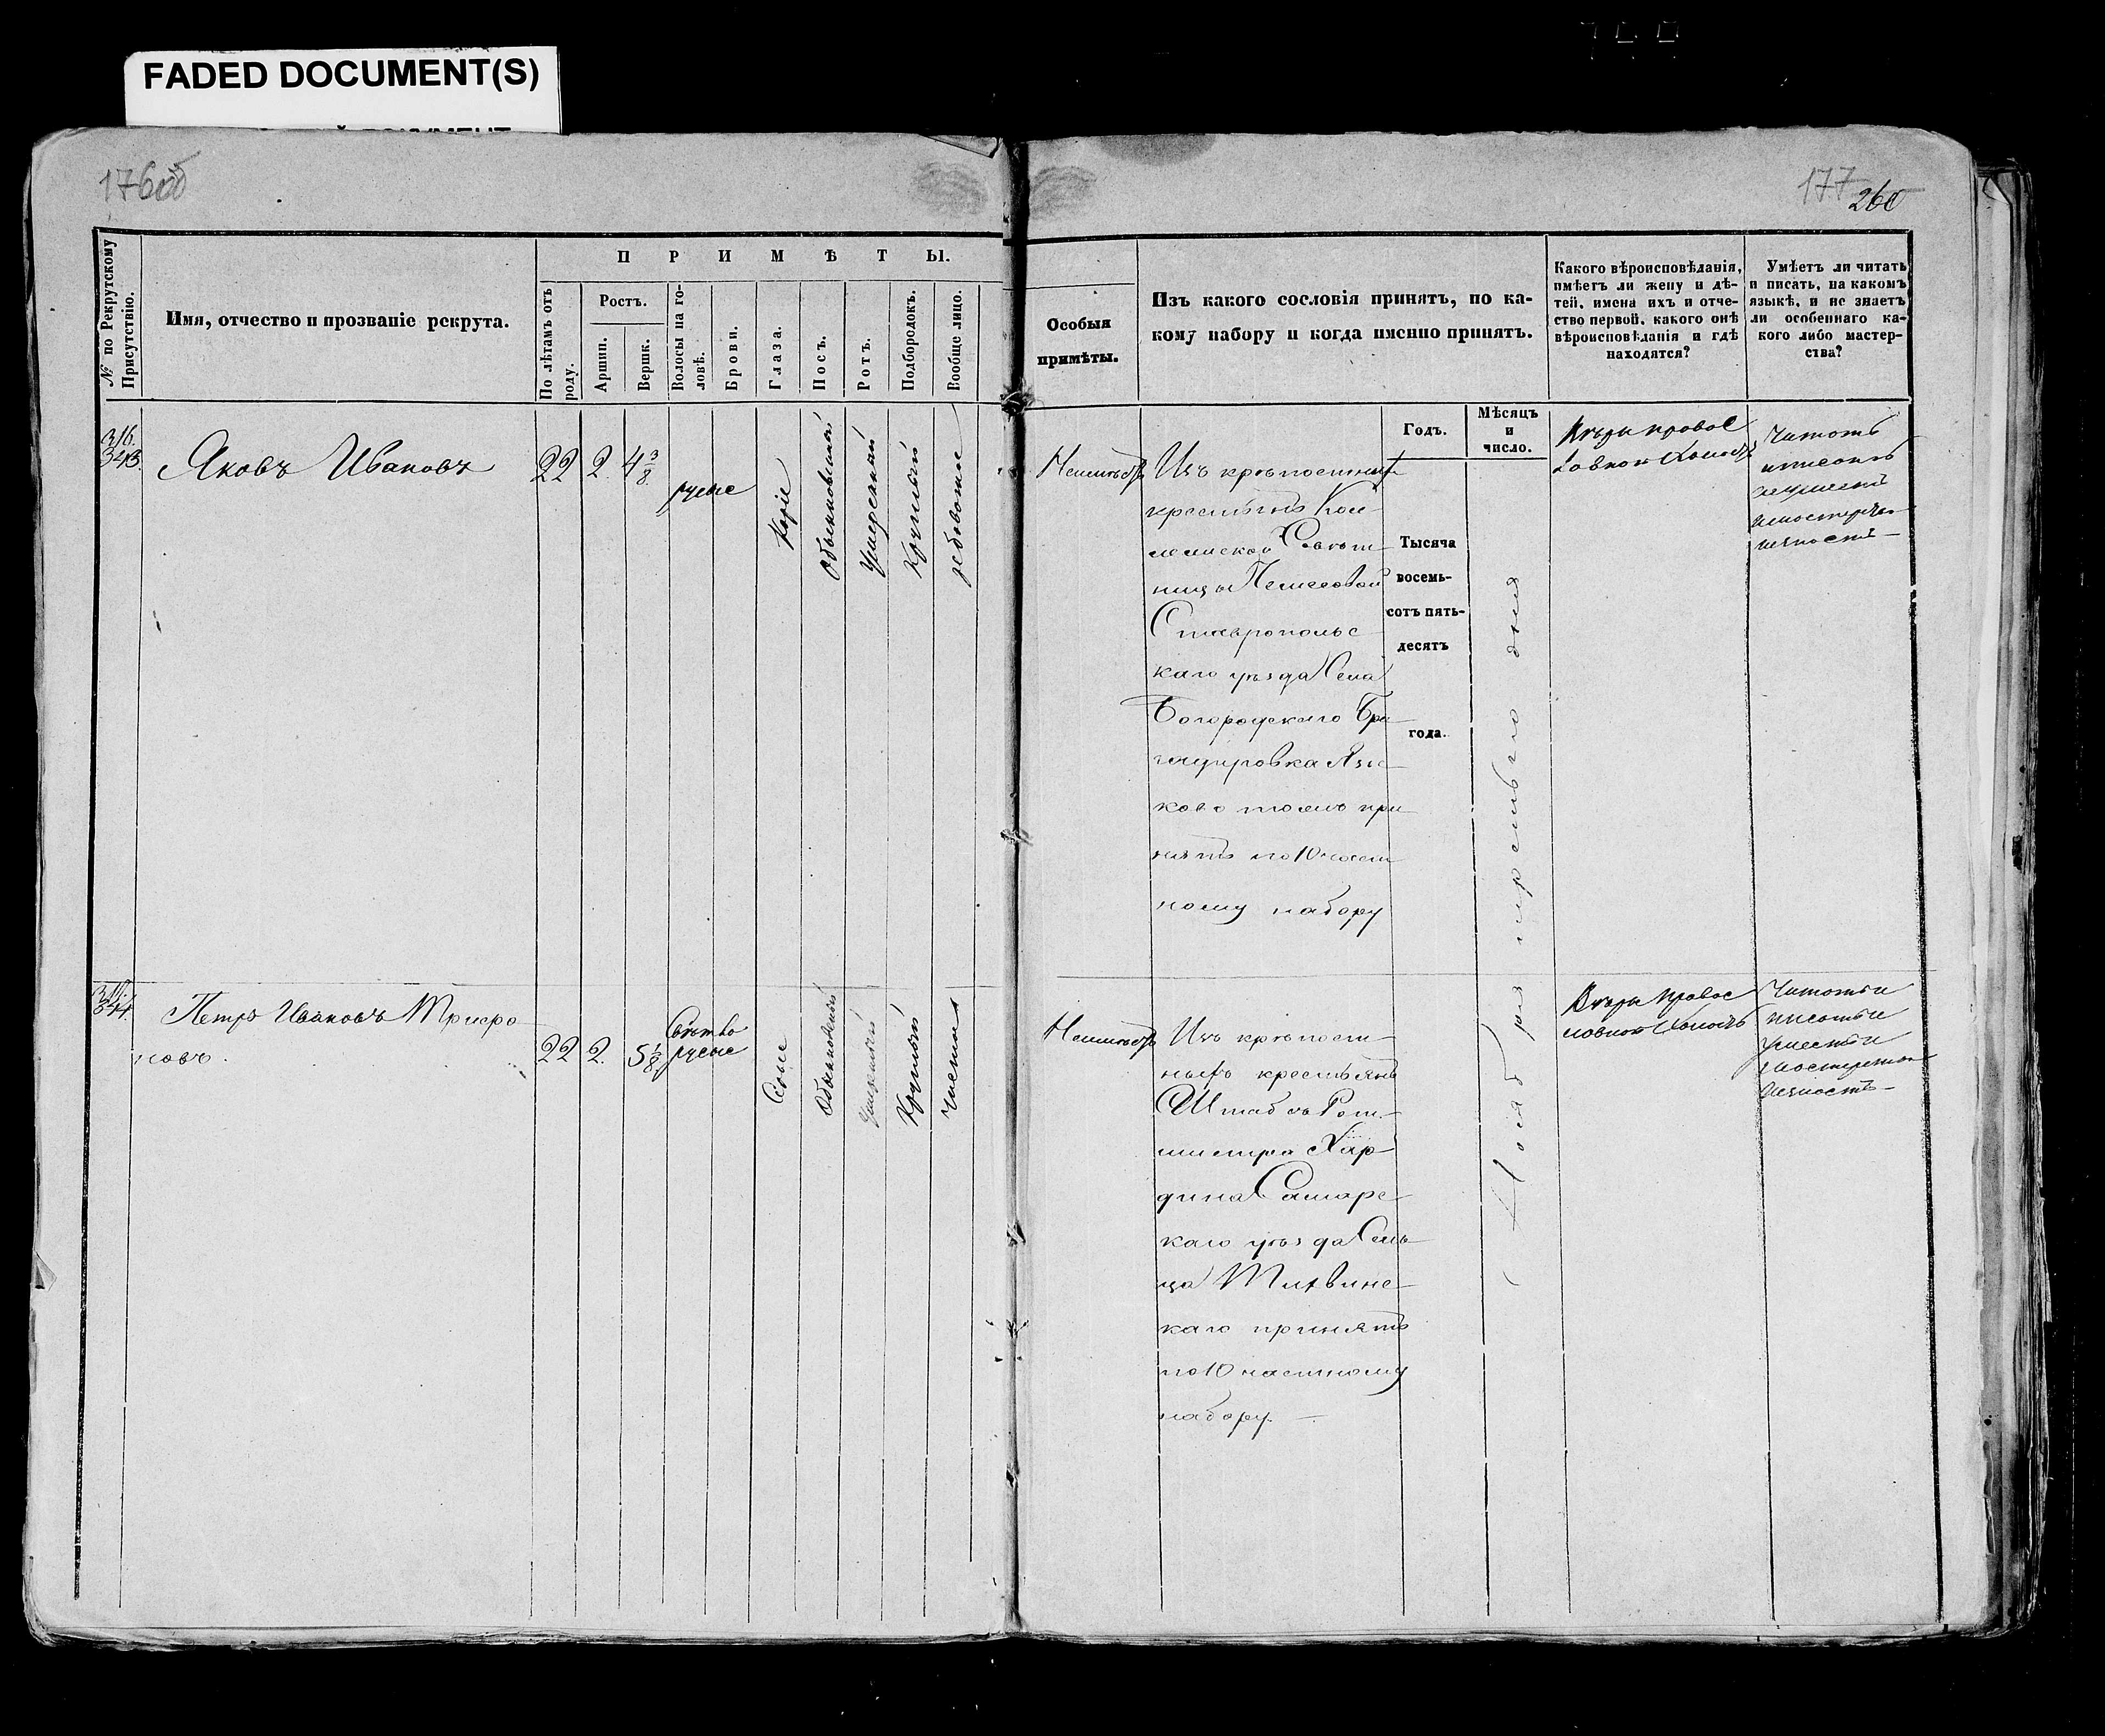 FADED DOCUMENT(S)
176об
177
260
№ по Рекрутскому Присутствію.
Имя, отчество и прозваніе рекрута.
ПРИМѢТЫ.
По лѣтамъ отъ роду.
Ростъ.
Аршин.
Вершк.
Волосы на головѣ.
Брови.
Глаза.
Носъ.
Ротъ.
Подбородокъ.
Вообще лицо.
Особыя
примѣты.
Изъ какого сословія принятъ, по ка-
кому набору и когда именно принятъ.
Какого вѣроисповѣданія,
имѣетъ ли жену и дѣ-
тей, имена ихъ и отче-
ство первой, какого онѣ
вѣроисповѣданія и гдѣ
находятся?
Умѣетъ ли читать
и писать, на какомъ
языкѣ, и не знаетъ
ли особеннаго ка-
кого либо мастер-
ства?
Годъ.
Мѣсяцъ
и
число.
Тысяча
восемь-
сотъ пять-
десятъ
года.
Ноября третьяго дня
316.
343.
Яковъ Ивановъ
22
2.
4 3/8
русые
Каріе
Обыкновенный
Умеренный
Круглый
рябоватое
Неимѣетъ
Изъ крѣпостныхъ
крестьянъ Кол
лежской Совѣт
ницы
Ставропольс
каго уѣзда Села
Богородскаго Бри
гадировка Язы
ково тожъ при
нятъ по 10 част
ному набору
Вѣры правос
лавной Холостъ
Читать
иписать
неумеетъ
имастерства
незнаетъ
317.
344.
Петръ Ивановъ
новъ.
22
2.
5 1/8
Светло
русые
Серые
Обыкновенный
Умеренный
Круглый
Чистое
Неимѣетъ
Изъ крѣпост
ныхъ крестьянъ
Штабсъ Рот
мистра Хар
дина Самарс
каго уѣзда Сель
ца
каго принятъ
по 10 частному
набору.
Вѣры правос
лавной Холостъ
Читать и
писать не
умеетъ и
мастерства
незнаетъ